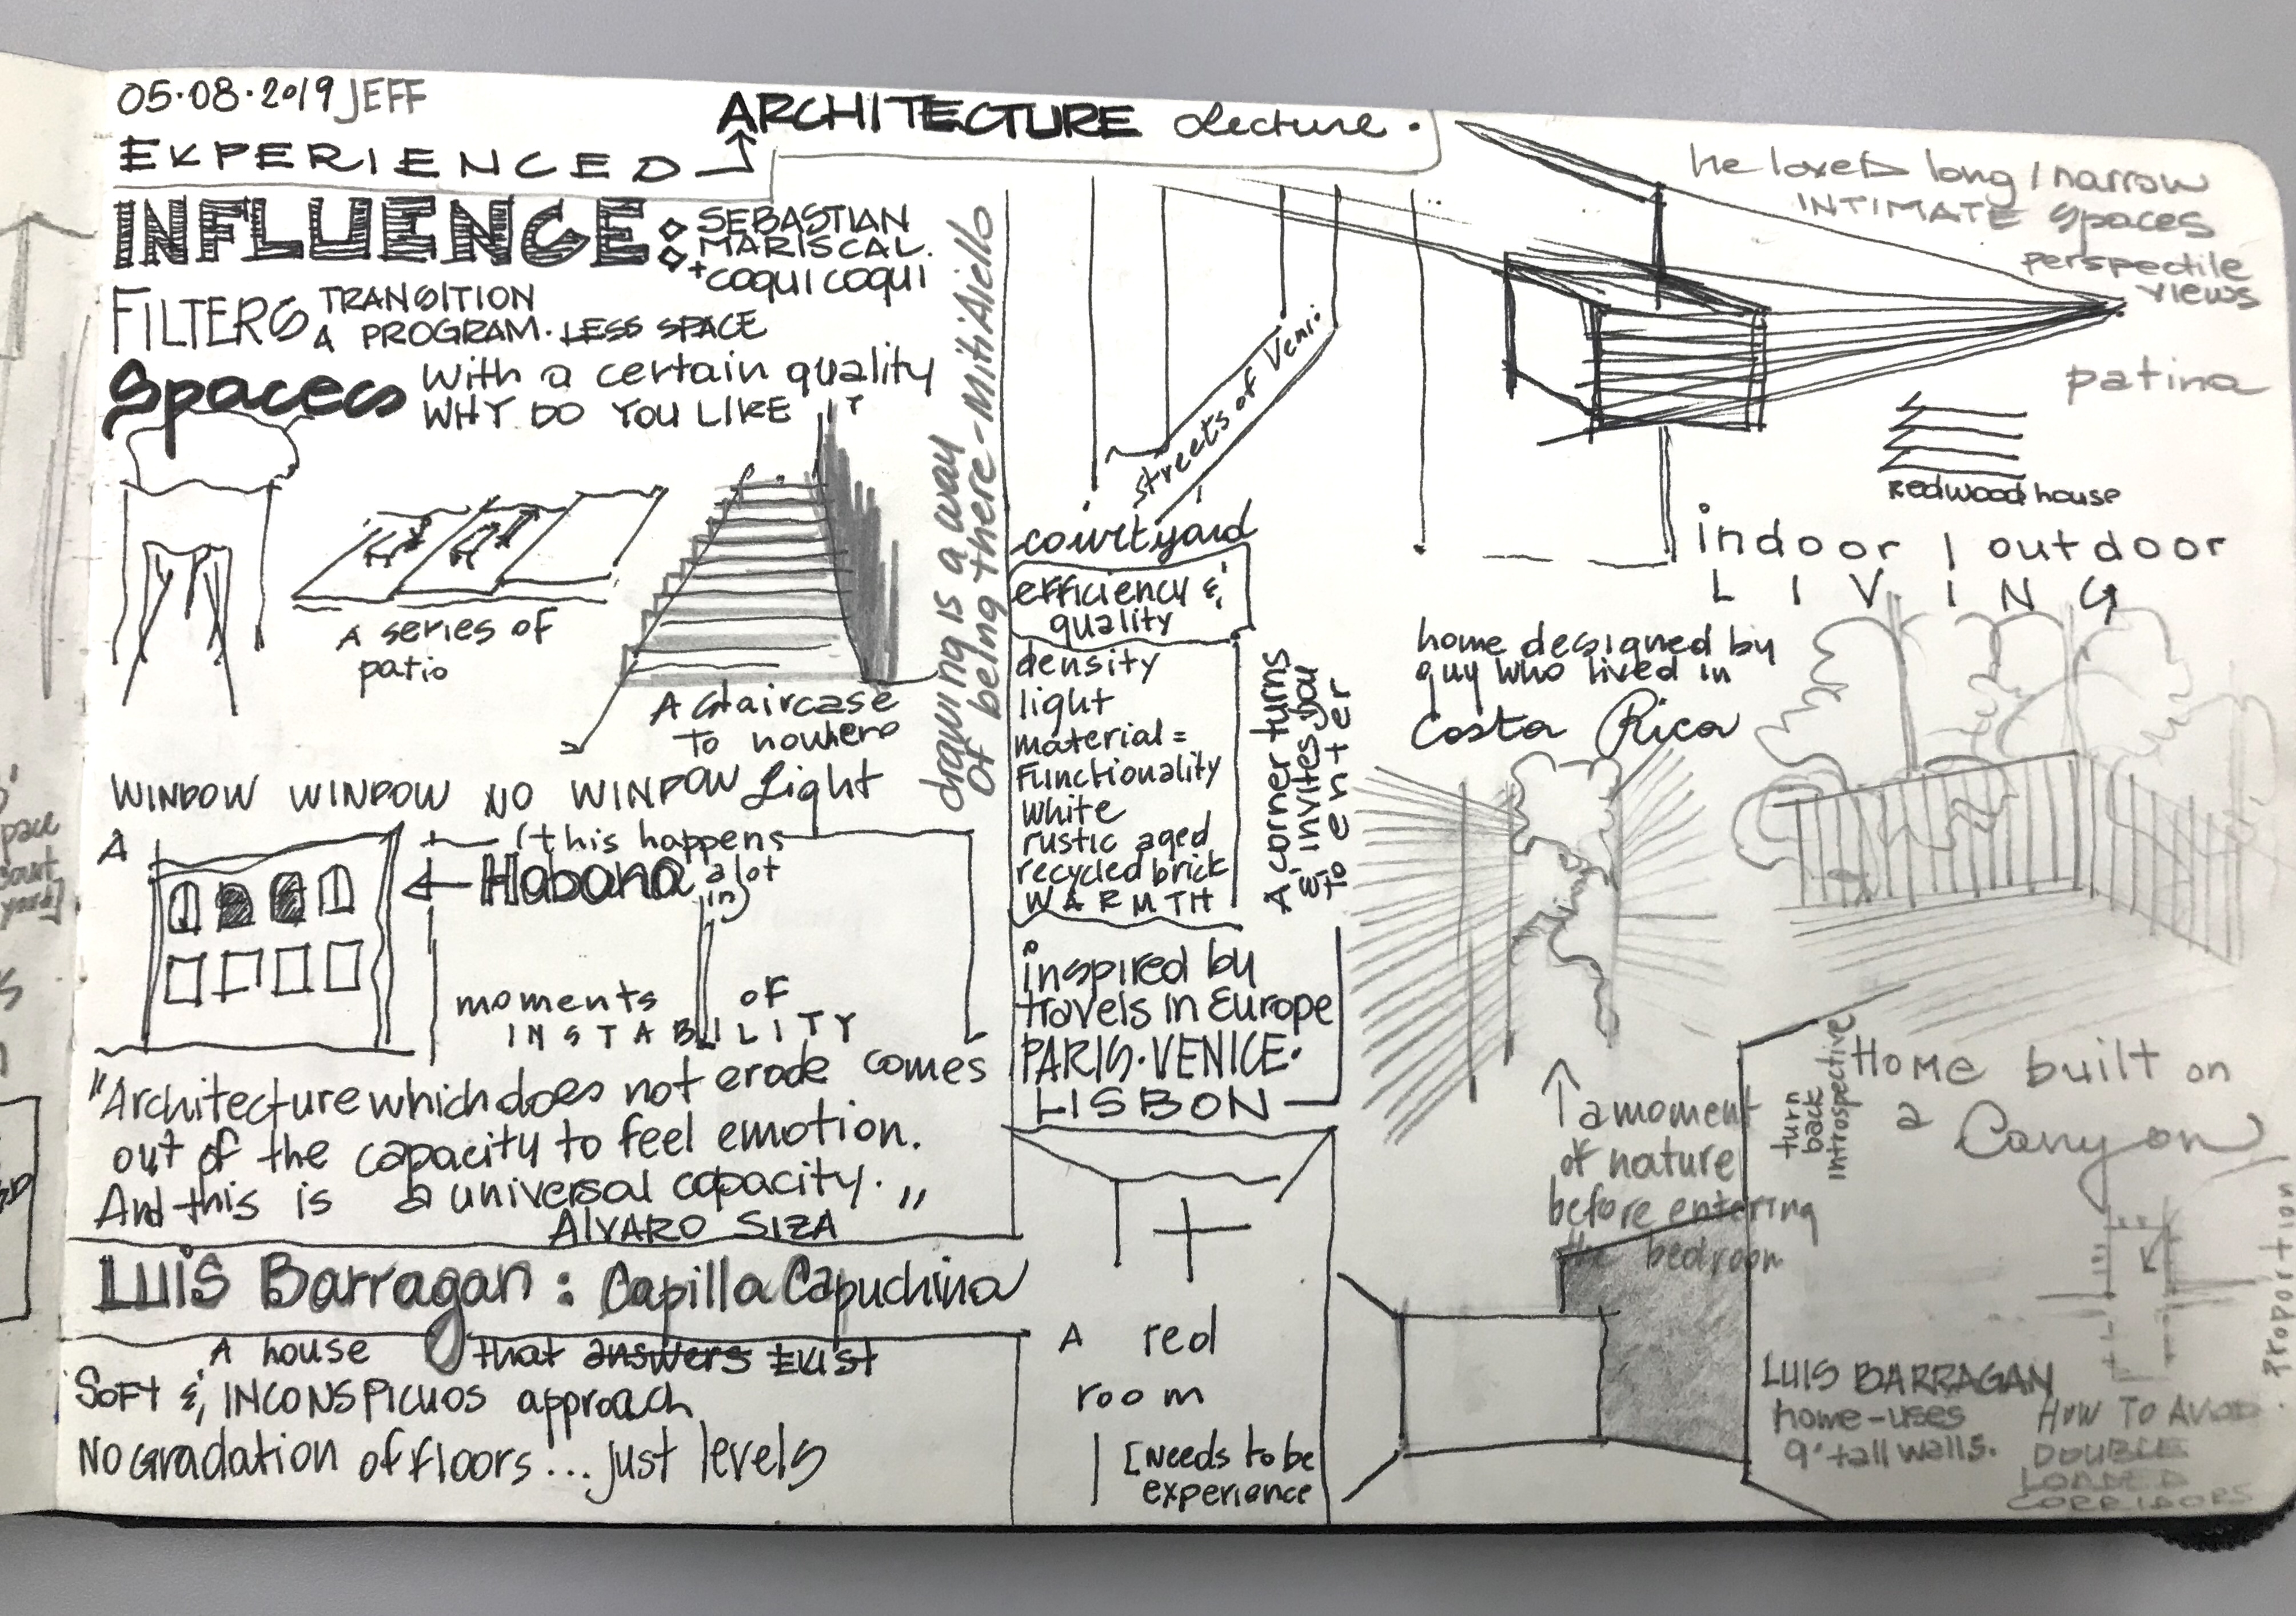 05·08·2019 JEFF
EXPERIENCED
ARCHITECTURE Lecture.
INFLUENCE:
SEBASTIAN
MARISCAL.
+ COQUI COQUI
FILTERS TRANSITION
A PROGRAM. LESS SPACE
Spaces With a certain quality
WHY DO YOU LIKE IT
A series of
patio
A Staircase
To nowhere
drawing is a way
of being there - Miti Aiello
WINDOW WINDOW NO WINDOW Light
A
(this happens
Habana a lot
in)
moments of
INSTABILITY
"Architecture which does not erode comes
out of the capacity to feel emotion.
And this is a universal capacity."
ALVARO SIZA
Luis Barragan: Capilla Capuchina
A house that answers EXIST
SOFT & INCONSPICUOS approach
NO Gradation of floors... just levels
streets of Veni.
courtyard
efficiency &
quality
density
light
material =
Functionality
white
rustic aged
recycled brick
WARMTH
A corner turns
& invites you
To enter
inspired by
travels in Europe
PARIS·VENICE·
LISBON
A red
room
[Needs to be
experience
he loved long / narrow
INTIMATE spaces
perspectile
views
patina
Redwood house
indoor | outdoor
LIVING
home designed by
guy who lived in
Costa Rica
a moment
of nature
before entering
the bedroom
turn
back
introspective
Home built on
a Canyon
Proportion
LUIS BARRAGAN
home-uses
9' tall walls.
HOW TO AVOID
DOUBLE
LOADED
CORRIDORS
pace
court
yard]